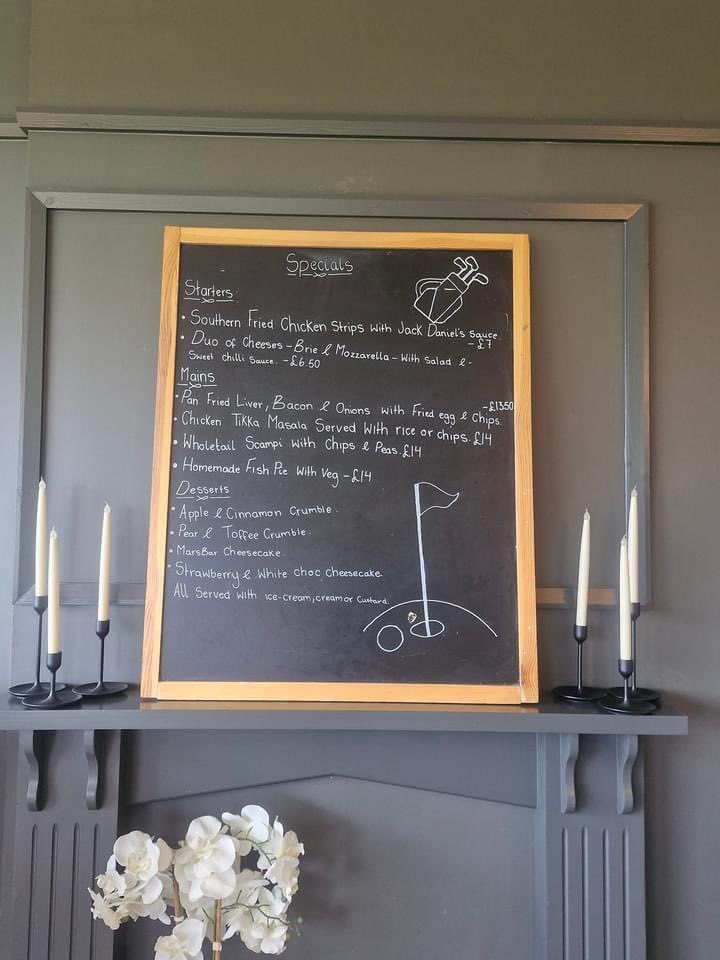 Specials
Starters
• Southern Fried Chicken Strips with Jack Daniel's sauce.
-£7
• Duo of Cheeses - Brie & Mozzarella - With Salad &-
Sweet chilli sauce. -£6.50
Mains
• Pan Fried Liver, Bacon & Onions with Fried egg & chips. -£13.50
• Chicken Tikka Masala Served With rice or chips. £14
• Wholetail Scampi With Chips & Peas. £14
• Homemade Fish Pie With Veg -£14
Desserts
• Apple & Cinnamon Crumble.
• Pear & Toffee Crumble.
• MarsBar Cheesecake.
• Strawberry & White choc, cheesecake.
All Served with ice-cream, cream or Custard.